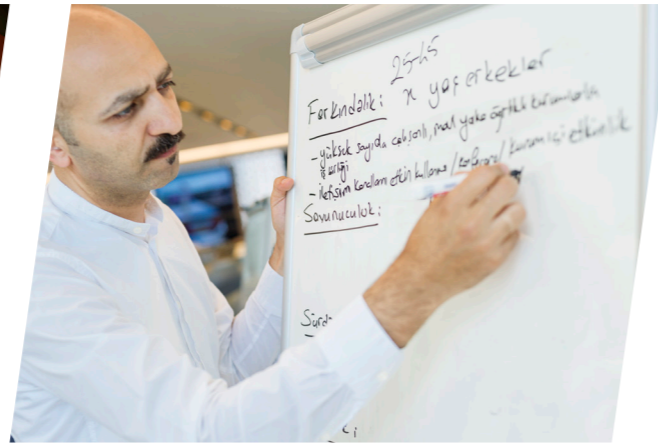 25-45
Farkındalık: x yaş erkekler
- yüksek sayıda çalışanlı, mavi yaka ağırlıklı kurumlarla
iş birliği
- iletişim kanalları etkin kullanma / / kurum içi etkinlik
Savunuculuk:
Sürd